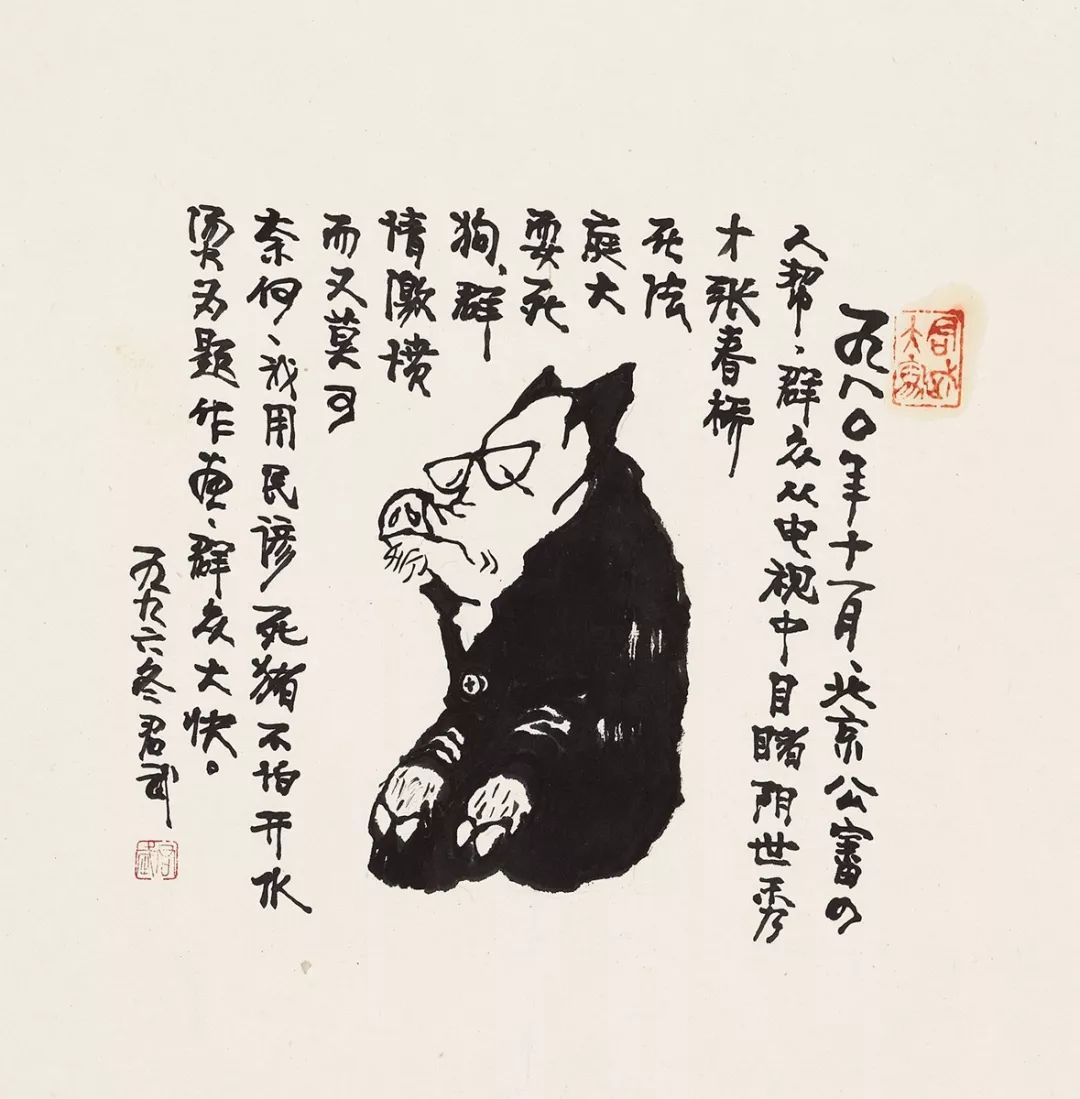 一九八〇年十一月、北京公審四
人帮、群众从电视中目睹阴世秀
才张春桥
在法
庭大
耍死
狗、群
情激愤
而又莫可
奈何、我用民谚死猪不怕开水
烫为题作画、群众大快。
一九九六冬君武
君武